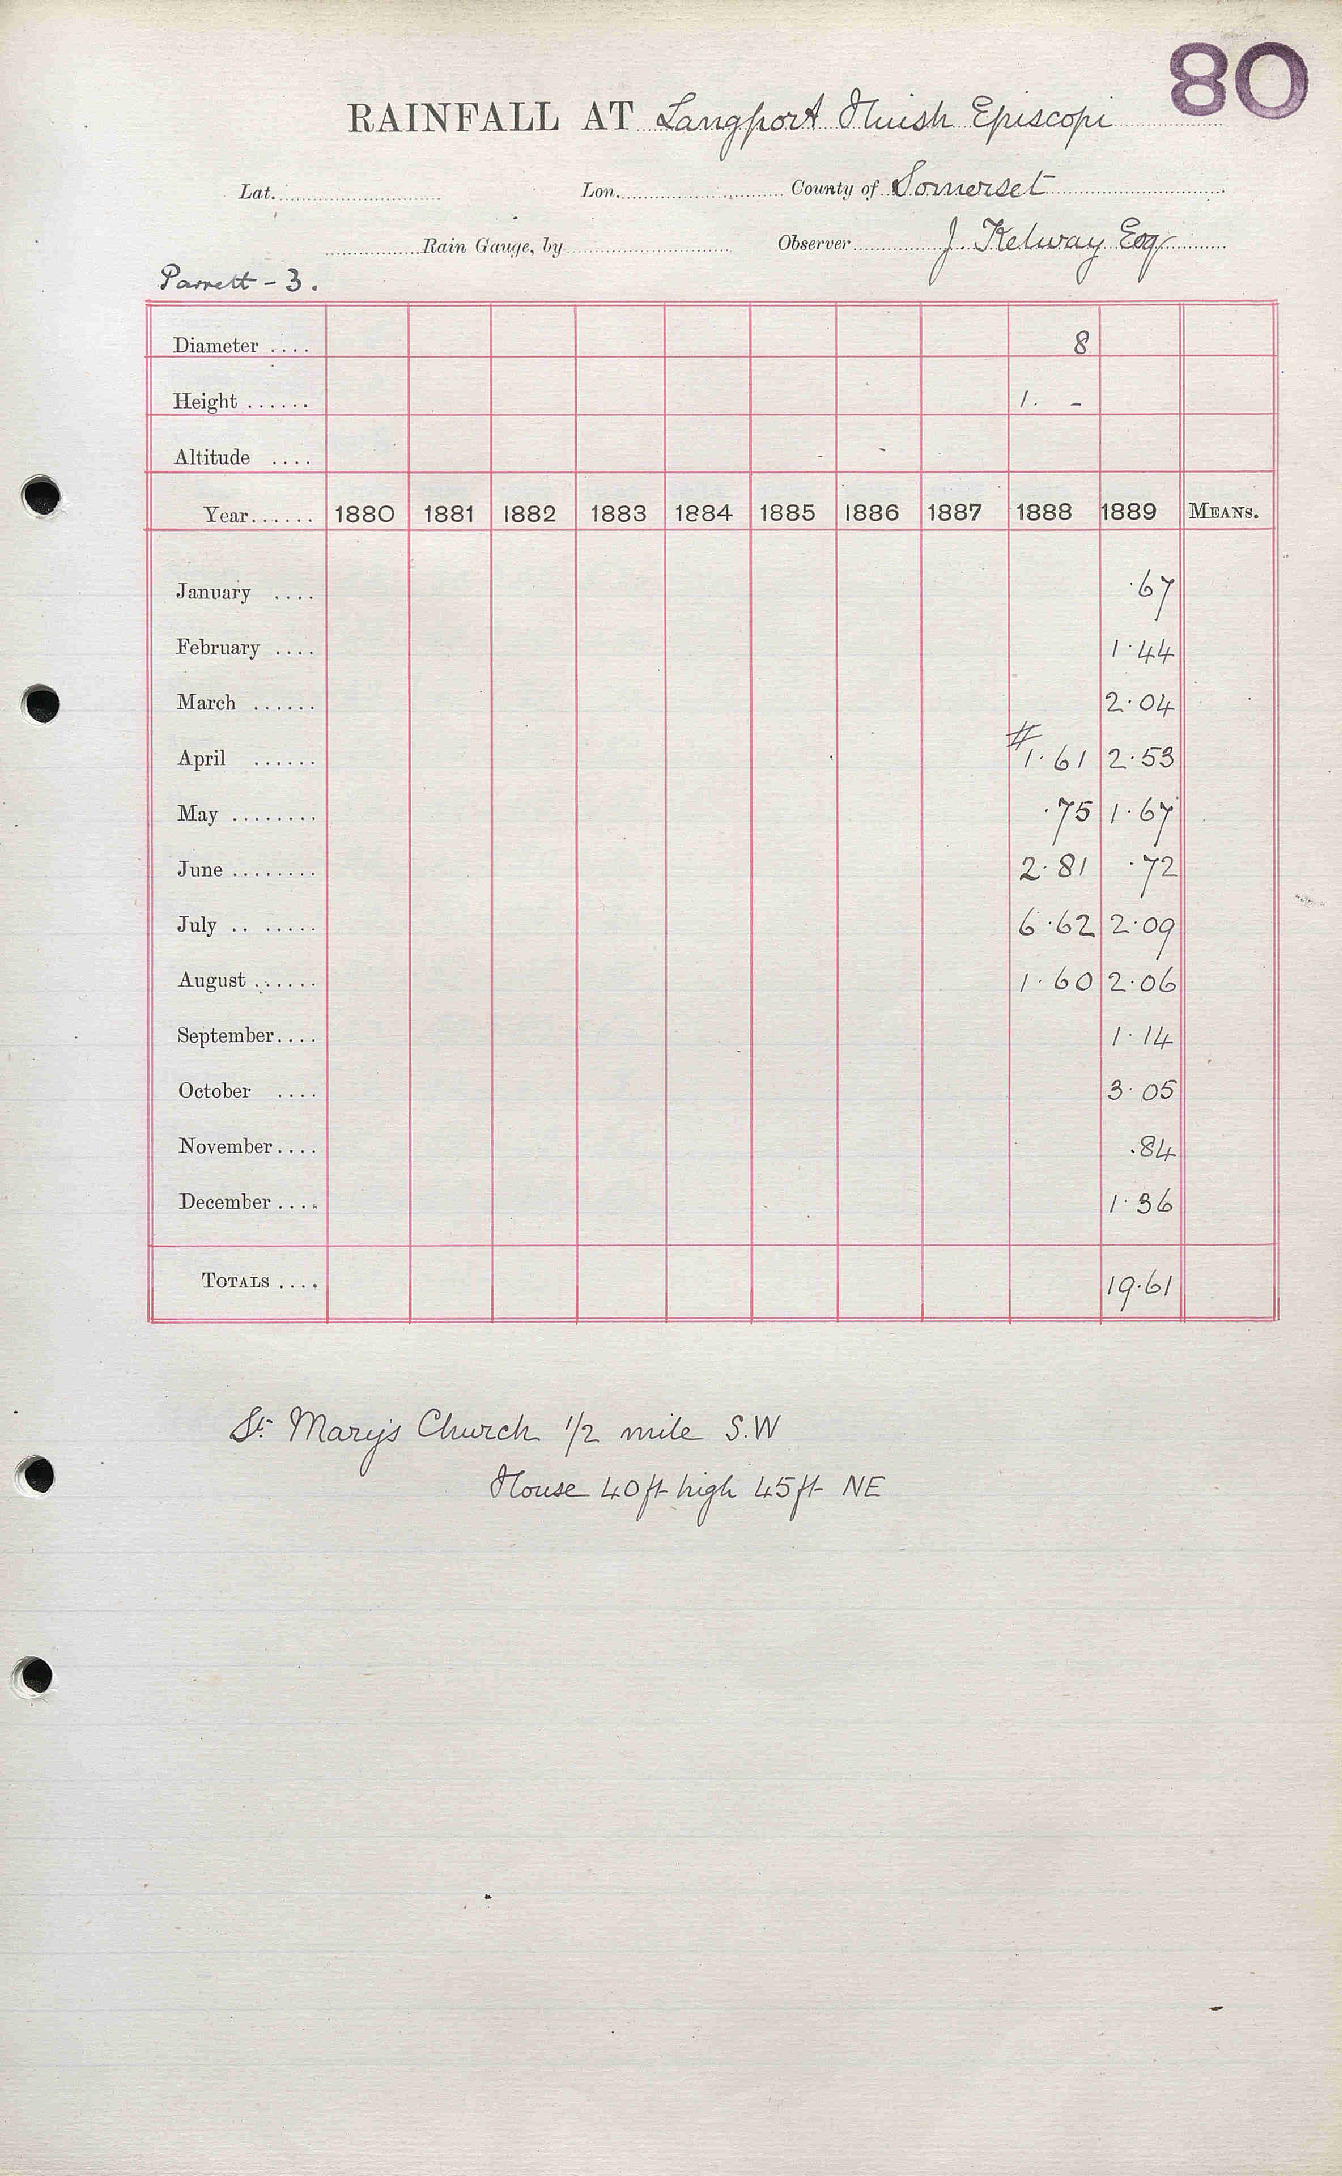 80
RAINFALL AT Langport Huish Episcopi
Lat. Lon. County of Somerset
Rain Gauge, by Observer J. Kelway Esq
Parrett - 3.
Diameter .... 8
Height ...... 1. -
Altitude ....
Year...... 1880 1881 1882 1883 1884 1885 1886 1887 1888 1889 MEANS.
January .... .67
February .... 1.44
March ...... 2.04
April ...... #1.61 2.53
May ........ .75 1.67
June ........ 2.81 .72
July .. ...... 6.62 2.09
August ...... 1.60 2.06
September.... 1.14
October .... 3.05
November.... .84
December .... 1.36
TOTALS .... 19.61
St. Mary's Church 1/2 mile S.W
House 40ft high 45ft NE